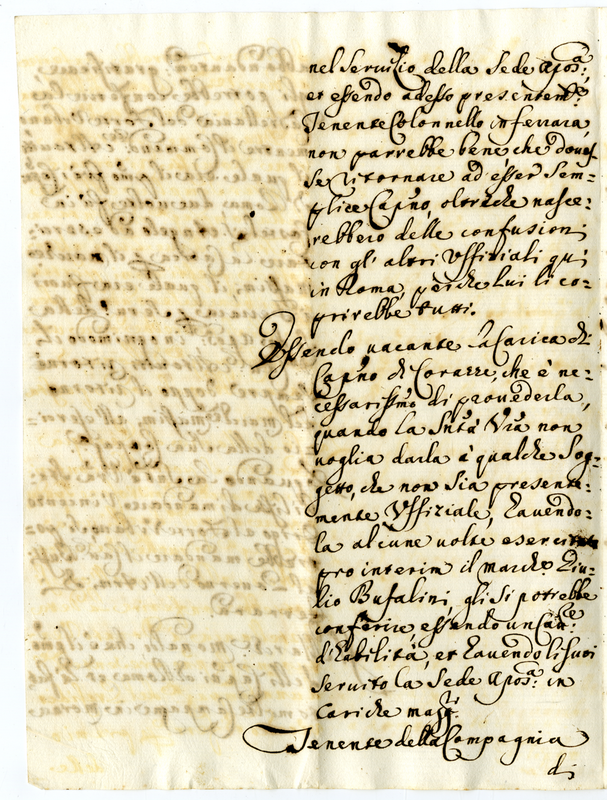 nel Seruitio della Sede Apos.a;
et essendo adesso presentem.te
Tenente Colonnello in ferrara,
non parrebbe bene che doues=
se ritornare ad esser Sem=
plice Capno, oltreche nasce=
rebbero delle confusioni
con gl'altri Vffitiali quì
in Roma, perche lui li co=
prirebbe tutti.
Essendo uacante la Carica di
Capno di Corazze, che è ne=
cessarissmo di prouederla,
quando la Sntà Vra non
uoglia darla à qualche Sog=
getto, che non sia presente=
mente Vffiziale, hauendo=
la alcune uolte esercitata
pro interim il march.e Giu=
lio Bufalini, gli si potrebbe
conferire, essendo un Cau.re
d'habilità, et hauendo li suoi
seruito la Sede Apos.a in
Cariche magri.
Tenente della Compagnia
di